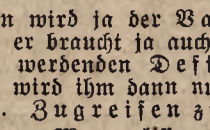 n wird ja der Va
er braucht ja auch
werdenden Defi
wird ihm dann nu
. Zugreifen z